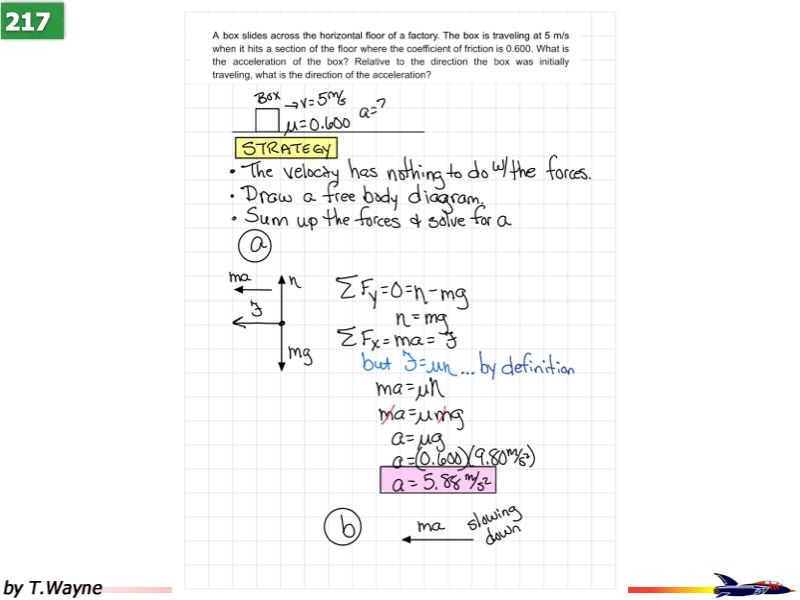 217
A box slides across the horizontal floor of a factory. The box is traveling at 5 m/s
when it hits a section of the floor where the coefficient of friction is 0.600. What is
the acceleration of the box? Relative to the direction the box was initially
traveling, what is the direction of the acceleration?
Box → v = 5 m/s
μ = 0.600 a = ?
STRATEGY
• The velocity has nothing to do w/ the forces.
• Draw a free body diagram.
• Sum up the forces & solve for a
a
ma
n
ℱ
mg
ΣFy = 0 = n - mg
n = mg
ΣFx = ma = ℱ
but ℱ = μn ... by definition
ma = μn
ma = μmg
a = μg
a = (0.600)(9.80 m/s²)
a = 5.88 m/s²
b
ma
slowing
down
by T.Wayne